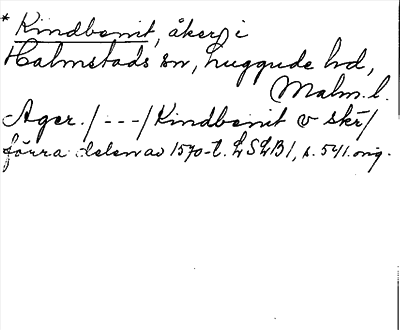 * Kindbenit, åker i
Halmstads sn, Luggude hd,
Malm. l.
Ager. / - - - / Kindbenit v skr /
förra delen av 1570-t. LSLB 1, s. 541. orig.